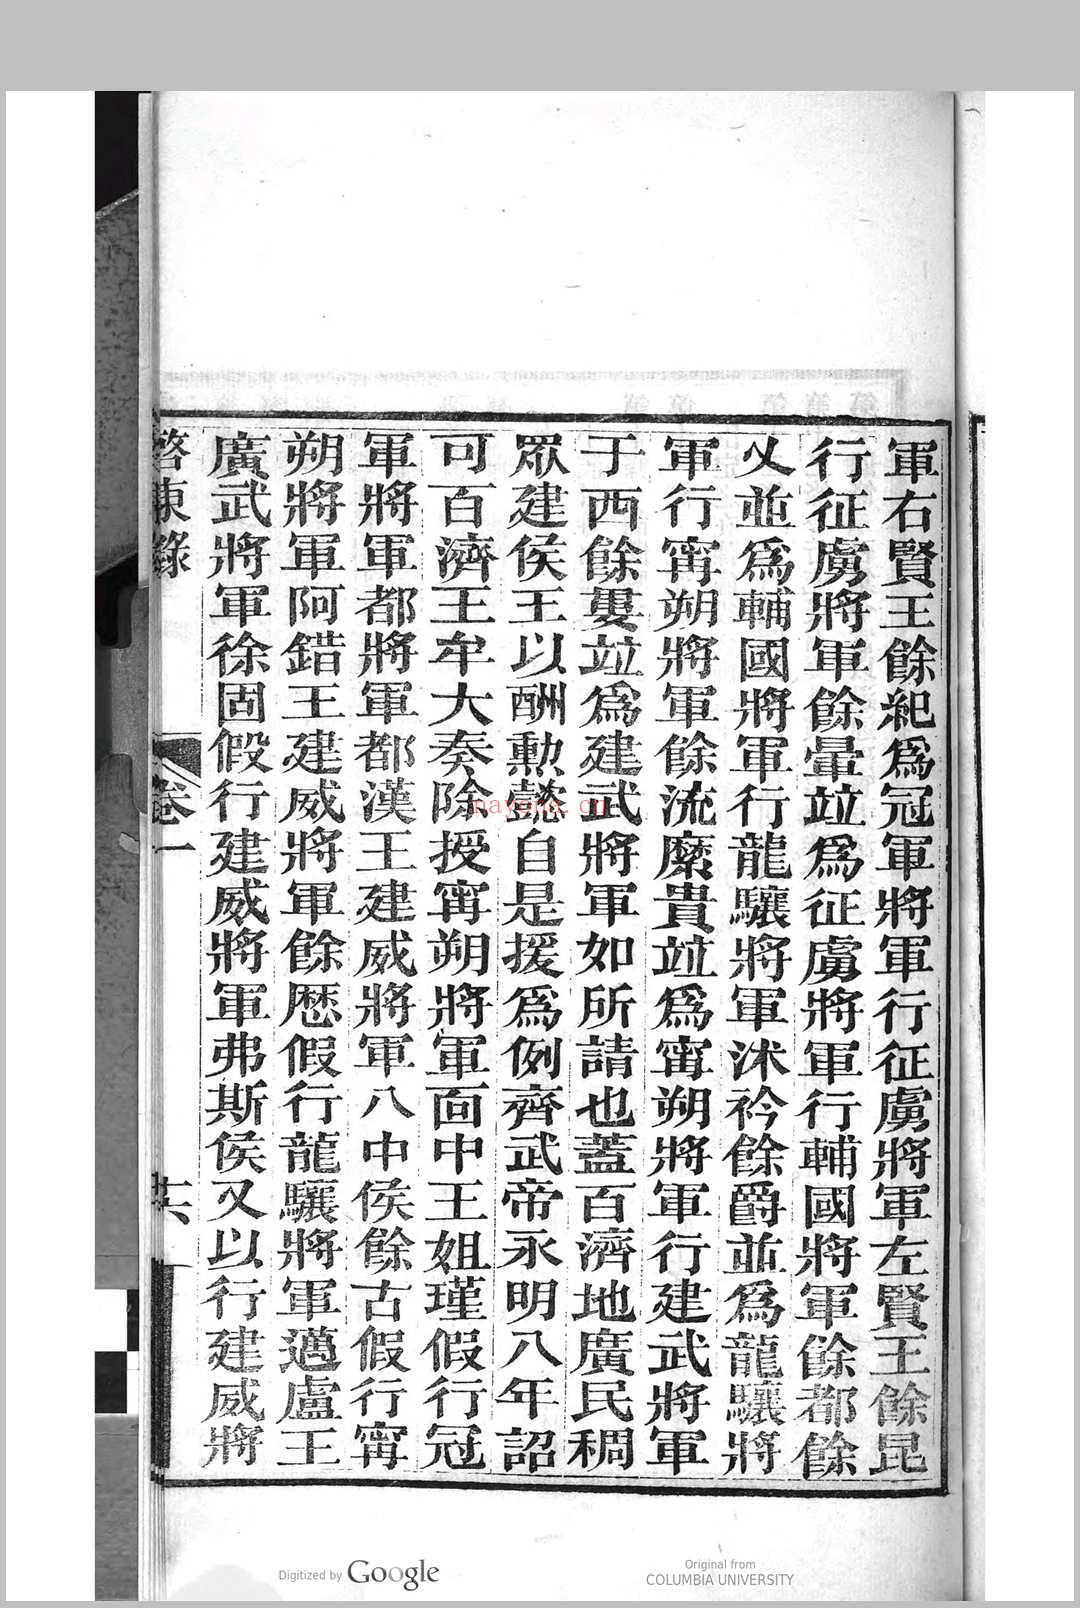 軍右賢王餘紀爲冠軍將軍行征虜將軍左賢王餘昆
行征虜將軍餘暈竝爲征虜將軍行輔國將軍餘都餘
乂並爲輔國將軍行龍驤將軍沭衿餘爵並爲龍驤將
軍行甯朔將軍餘流麋貴竝爲甯朔將軍行建武將軍
于西餘婁竝爲建武將軍如所請也蓋百濟地廣民稠
眾建侯王以酬勳懿自是援爲例齊武帝永明八年詔
可百濟王牟大奏除授甯朔將軍面中王姐瑾假行冠
軍將軍都將軍都漢王建威將軍八中侯餘古假行甯
朔將軍阿錯王建威將軍餘歷假行龍驤將軍邁盧王
廣武將軍徐固假行建威將軍弗斯侯又以行建威將
東錄 卷一 十六
nayona.cn
Digitized by Google
Original from
COLUMBIA UNIVERSITY